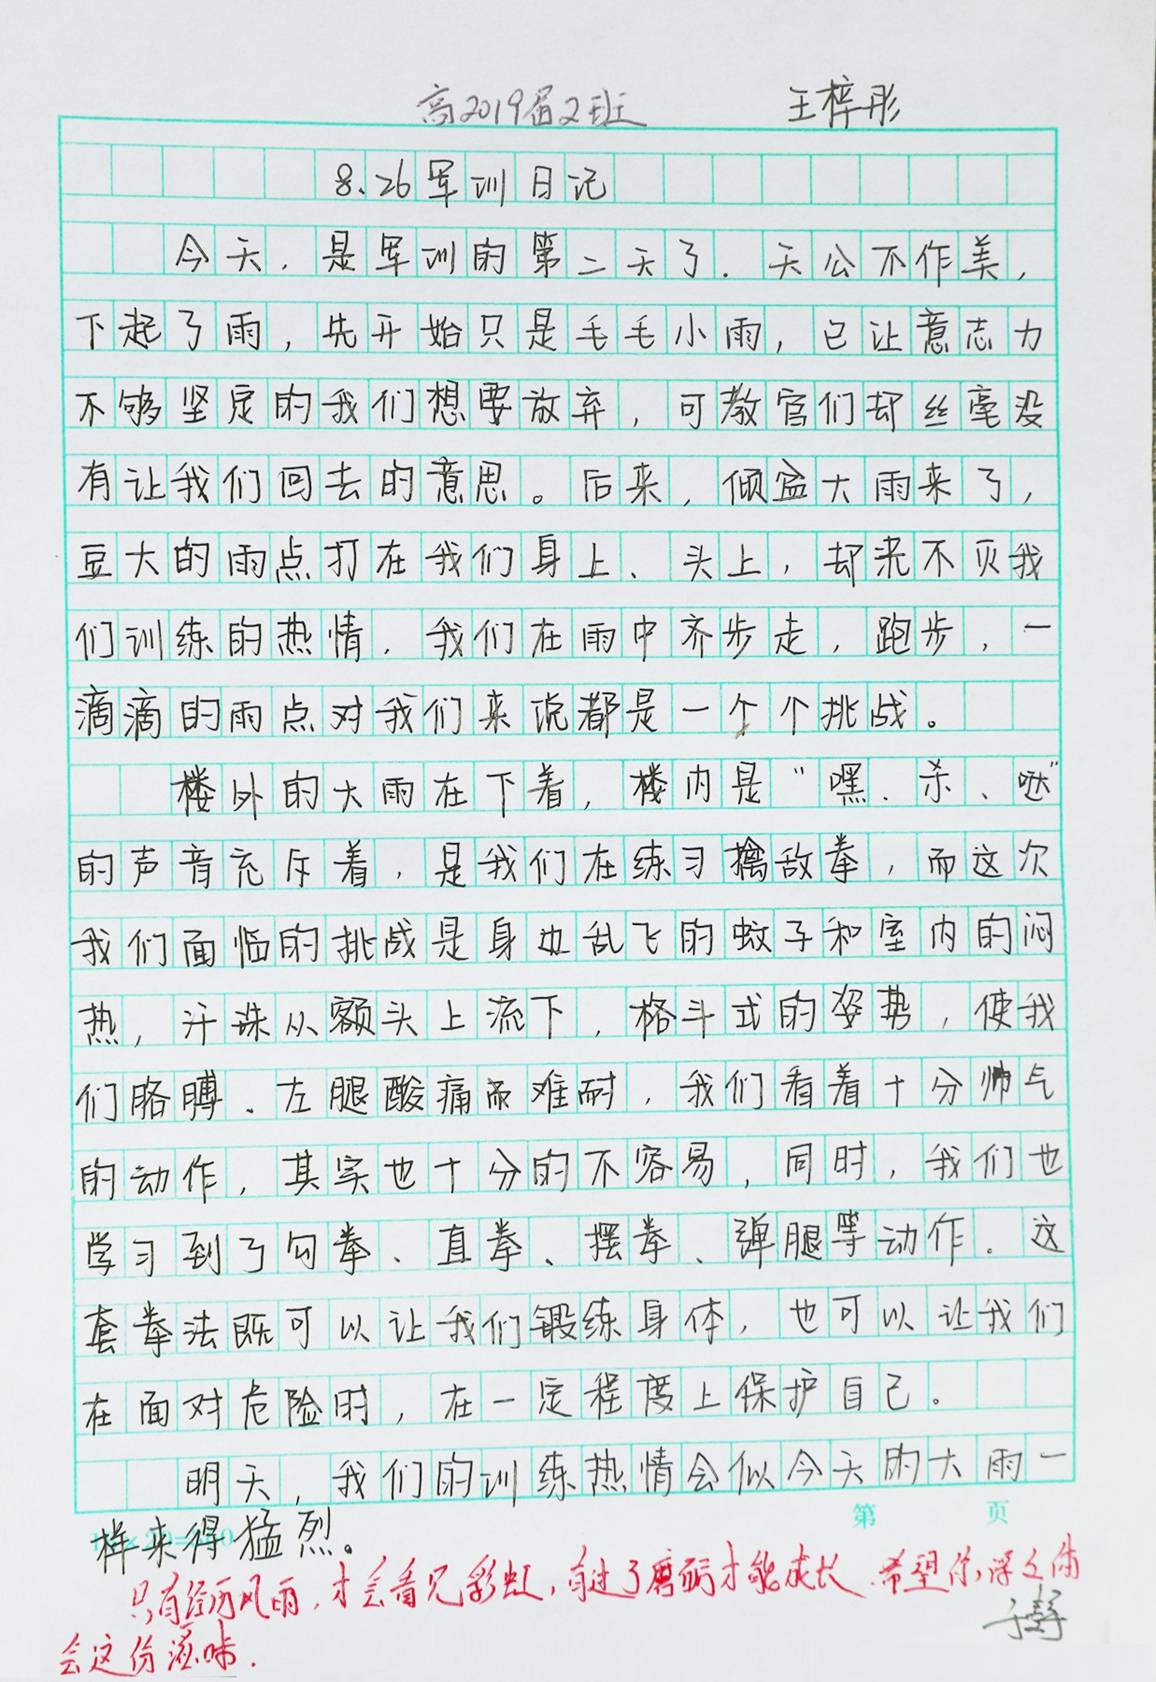 高2019届2班 王梓彤
8.26军训日记
今天，是军训的第二天了．天公不作美，
下起了雨，先开始只是毛毛小雨，已让意志力
不够坚定的我们想要放弃，可教官们却丝毫没
有让我们回去的意思。后来，倾盆大雨来了，
豆大的雨点打在我们身上、头上，却来不灭我
们训练的热情．我们在雨中齐步走，跑步，一
滴滴的雨点对我们来说都是一个个挑战。
楼外的大雨在下着，楼内是“嘿、杀、哒”
的声音充斥着，是我们在练习擒敌拳，而这次
我们面临的挑战是身边乱飞的蚊子和室内的闷
热，汗珠从额头上流下，格斗式的姿势，使我
们胳膊、左腿酸痛而难耐，我们看着十分帅气
的动作，其实也十分的不容易，同时，我们也
学习到了勾拳、直拳、摆拳、弹腿等动作．这
套拳法既可以让我们锻练身体，也可以让我们
在面对危险时，在一定程度上保护自己。
明天，我们的训练热情会似今天的大雨一
第 页
样来得猛烈。
只有经历风雨，才会看见彩虹，有过了磨砺才能成长．希望你深之体
会这份滋味．